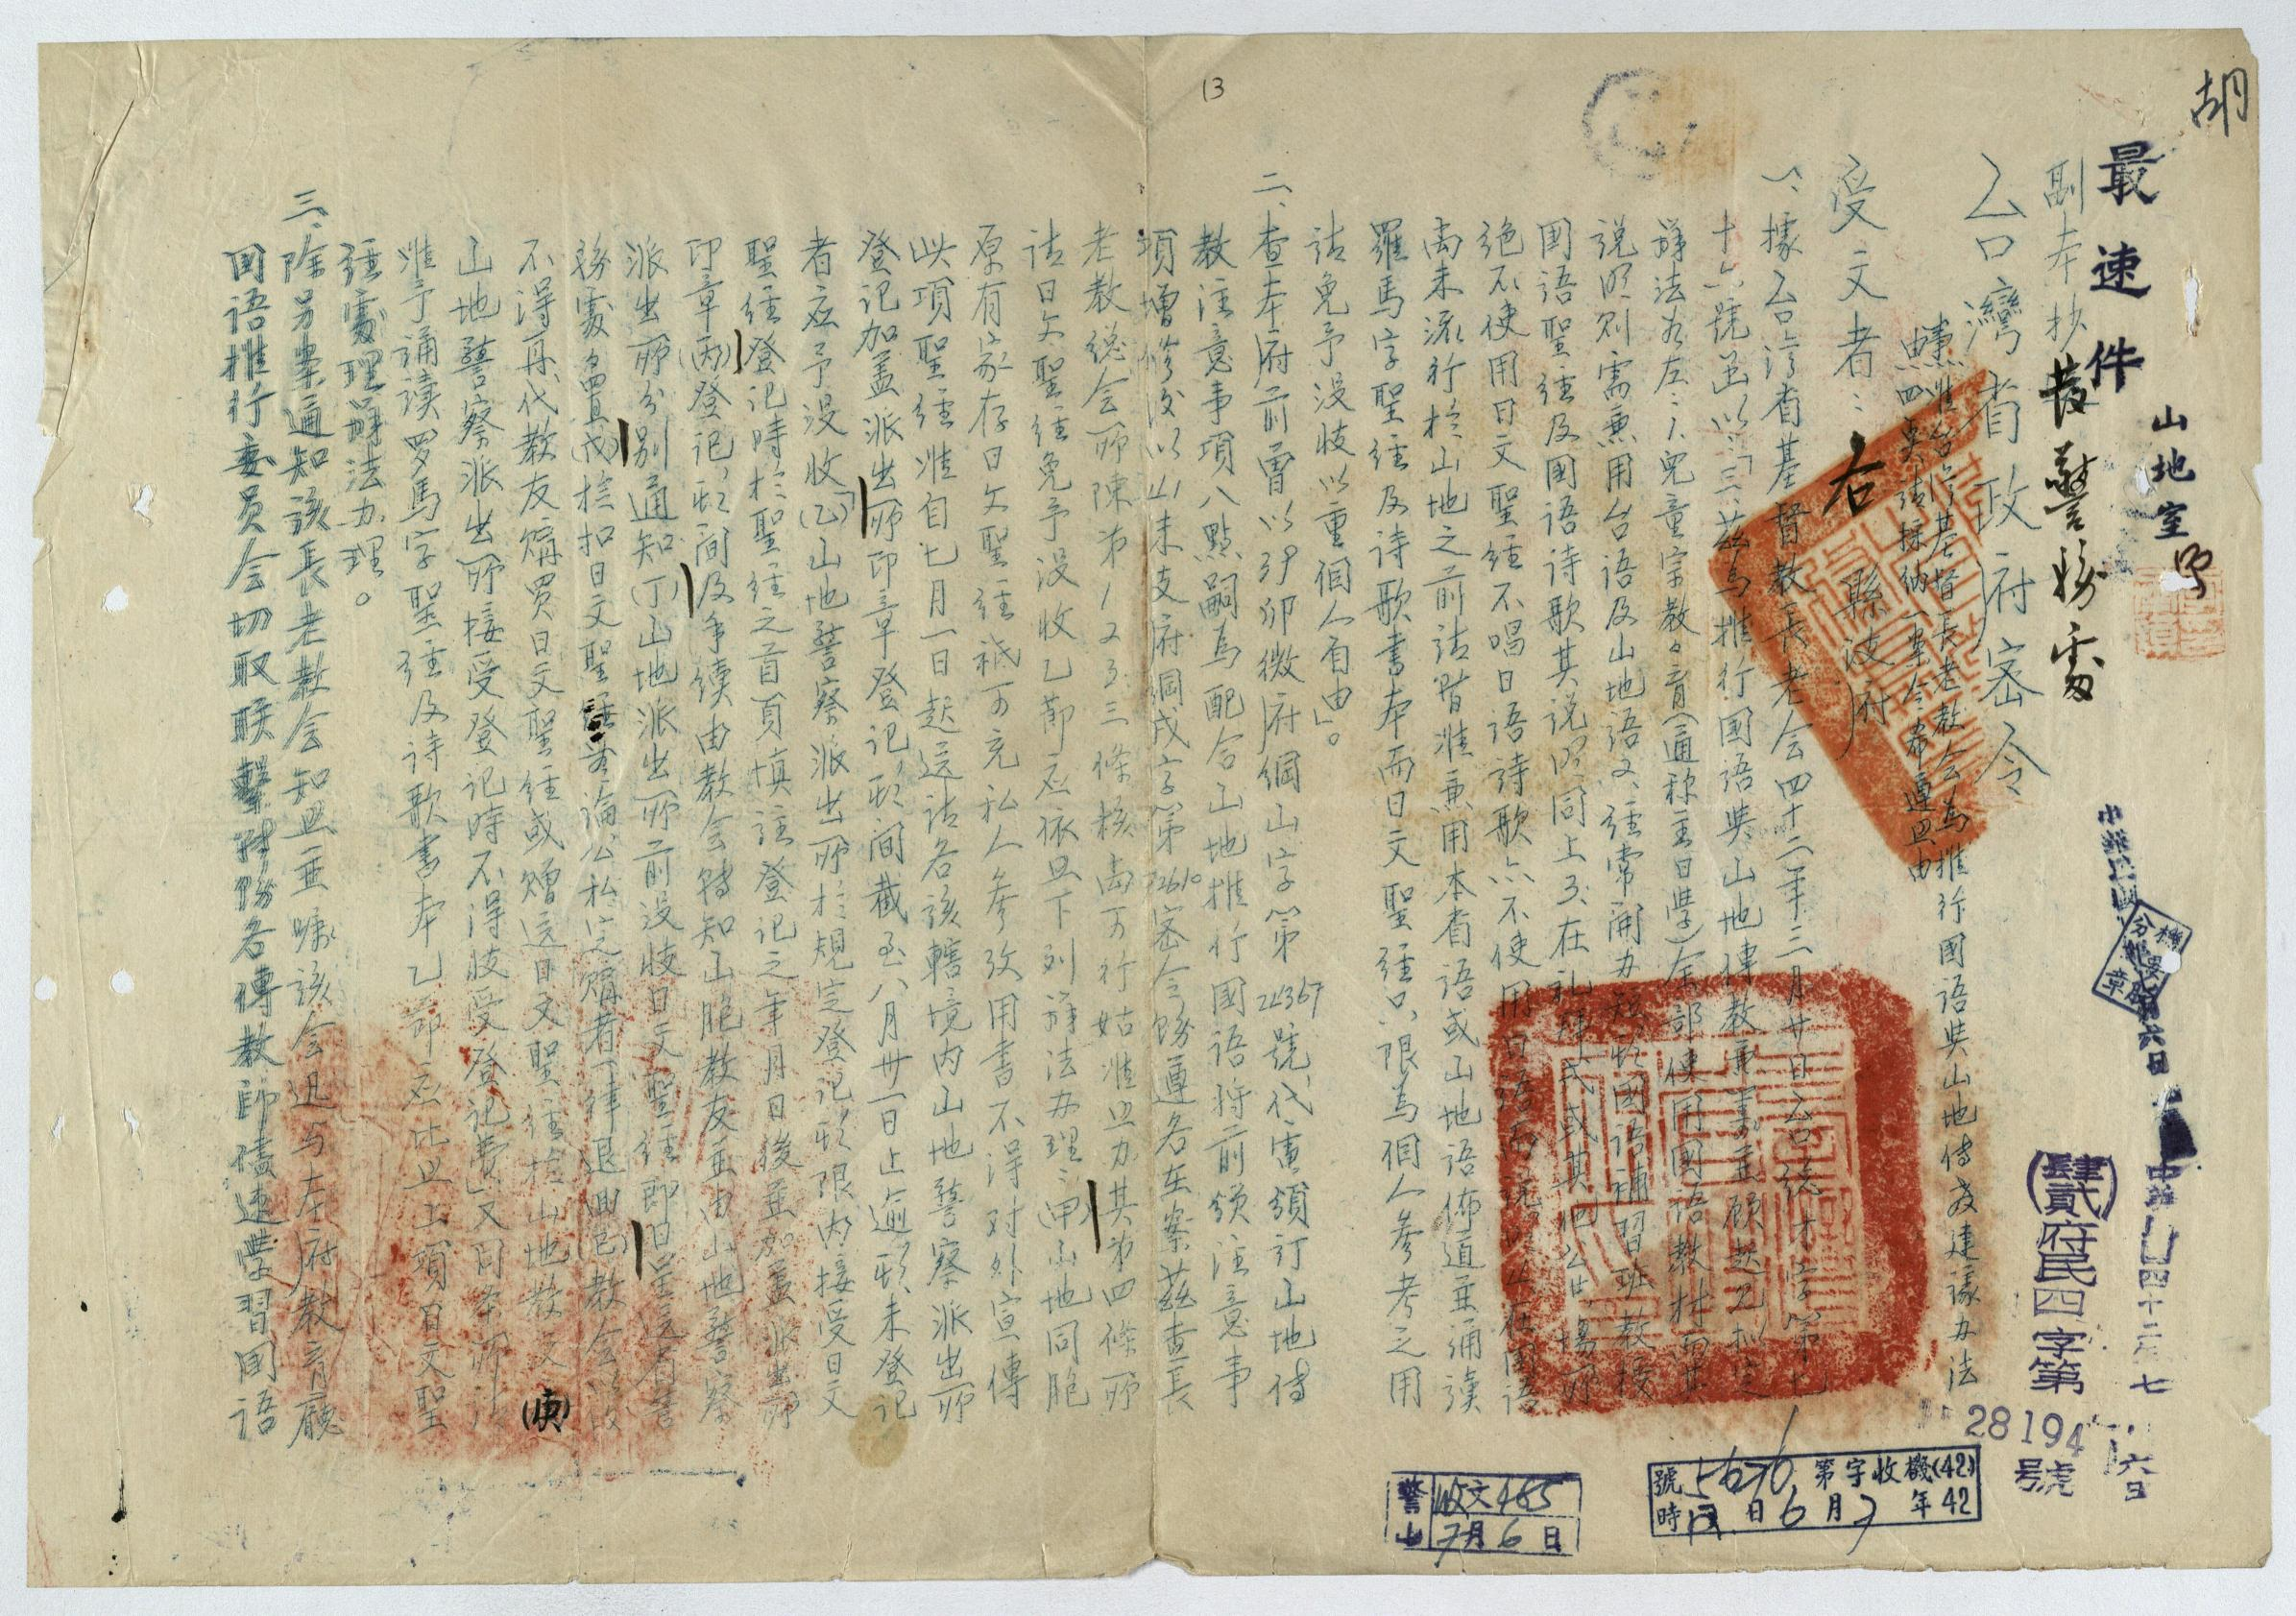 胡
最速件
山地室
副本抄發警務處
台灣省政府密令
受文者：右縣政府
中華民國四十二年七月六日
(肆貳)府民四字第
28194號
據台灣省基督教長老会為推行國語與山地傳教建議办法
一、據台灣省基督教長老会四十二年三月廿日台總才字第七
十六號函以：「三、茲為推行國語與山地傳教
辦法為左：1.兒童宗教々育(通称主日學)全部使用國語教材而其
說明則需兼用台語及山地語2.經常開办短期國語補習班教授
國語聖經及國語詩歌其說明同上3.在礼拜式或其他公共場所
絕不使用日文聖經不唱日語詩歌亦不使用日語
尚未流行於山地之前請暫准兼用本省語或山地語佈道並誦讀
羅馬字聖經及詩歌書本而日文聖經只限為個人參考之用
請免予沒收以重個人自由」。
二、查本府前曾以 府綱山字第22367號代電頒訂山地傳
教注意事項八點嗣為配合山地推行國語将前頒注意事
項增修後以 府綱戊字第 密令飭遵各在案茲查長
老教總会所陳第1 2 3三條核尚可行姑准照办其第四條所
請日文聖經免予沒收乙節应依照下列辦法办理：(甲)山地同胞
原有家存日文聖經祇可充私人參攷用書不得对外宣傳
此項聖經准自七月一日起送請各該轄境內山地警察派出所
登記加盖派出所印章登記期间截至八月卅一日止逾期未登記
者应予沒收(乙)山地警察派出所於規定登記期限內接受日文
聖經登記時於聖經之首頁填註登記之年月日後並加盖派出所
印章(丙)登記期间及手續由教会轉知山胞教友並由山地警察
派出所分別通知(丁)山地派出所前沒收日文聖經即日呈送省警
務處處置(戊)檢扣日文聖經無論公私定購者一律退回(己)教会以後
不得再代教友購買日文聖經或贈送日文聖經於山地教友(庚)
山地警察派出所接受登記時不得收受登記費」又同條所
准予誦读罗馬字聖經及詩歌書本乙節应比照上項日文聖
經處理辦法办理。
三、除另案通知該長老教会知照並囑該会迅与本府教育廳
國語推行委员会切取联繫 飭各傳教師儘速學習國語
機要
分類
章
(42)機收字第5676號
42年7月6日 時
警山
收文465
7月6日
13